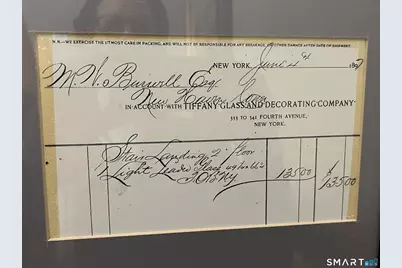 N.B.—WE EXERCISE THE UTMOST CARE IN PACKING, AND WILL NOT BE RESPONSIBLE FOR BREAKAGE OR OTHER DAMAGE AFTER DATE OF SHIPMENT.
NEW YORK, June 4th 189
M. V. Esq.
New Haven Conn
IN ACCOUNT WITH TIFFANY GLASS AND DECORATING COMPANY
333 TO 341 FOURTH AVENUE,
NEW YORK.
Stair Landing 2d floor
1 Light Leaded Glass
135 00 $135 00
SMART